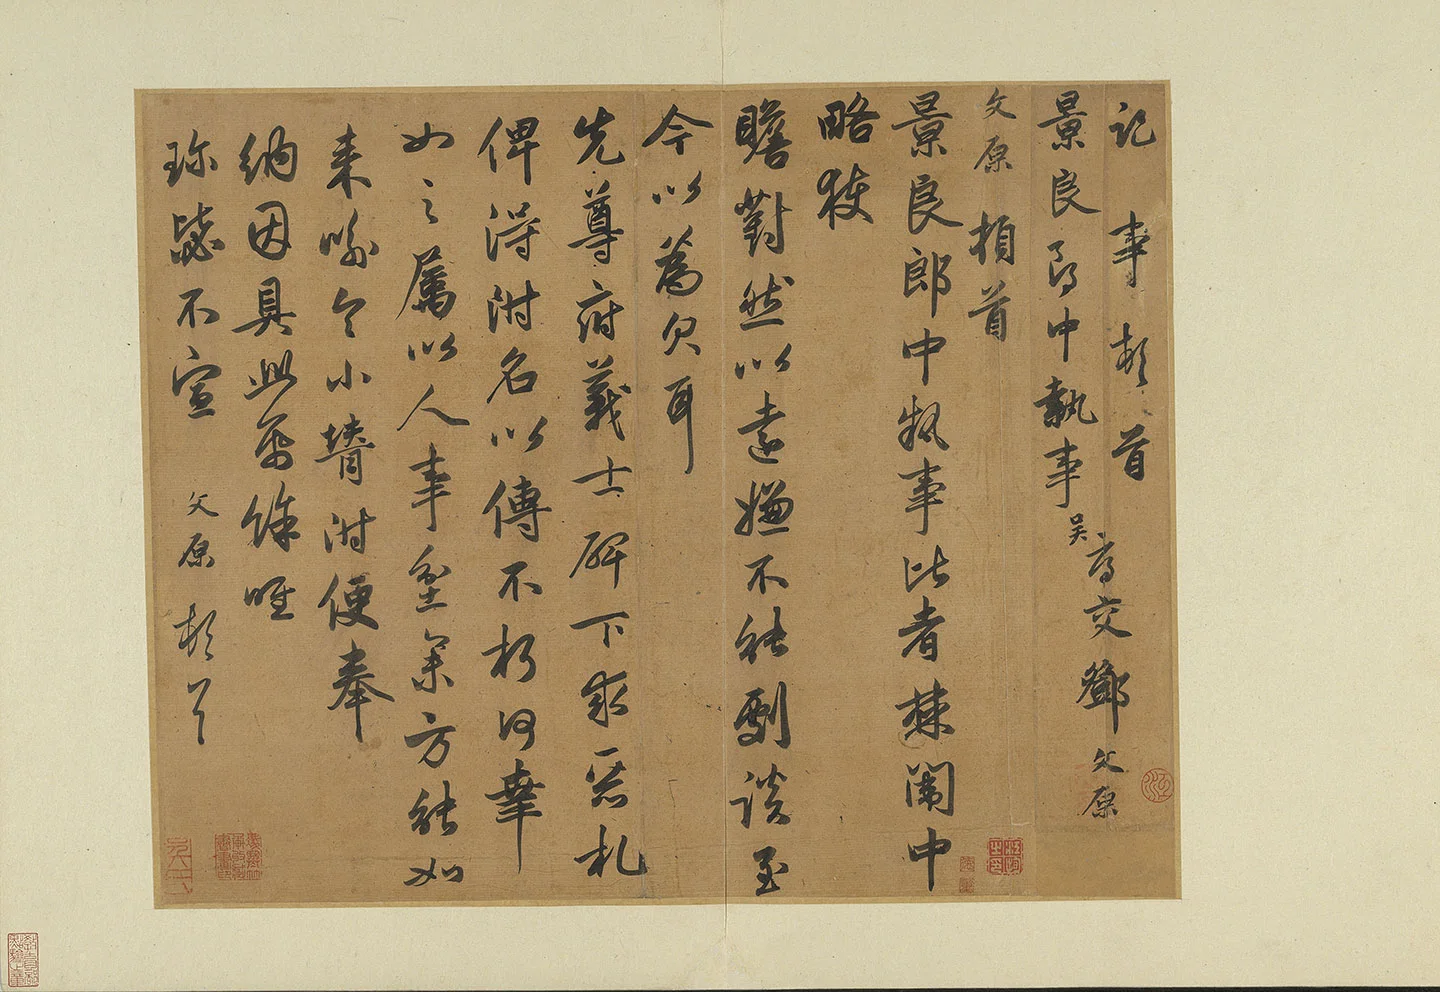 記事頓首
景良郎中執事 吳 交鄧文原
文原頓首
景良郎中執事比者棘闈中
略獲
瞻對然以遠嫌不能劇談至
今以為欠耳
先尊府義士碑下求惡札
俾得附名以傳不朽何幸
如之屬以人事坌集方能如
來喻 小贊附便奉
納因具此 餘唯
珍毖不宣 文原頓首